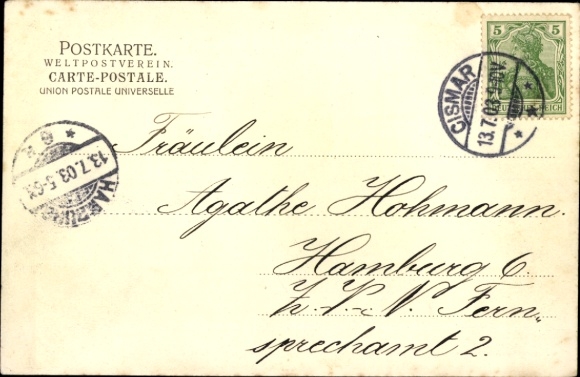 POSTKARTE.
WELTPOSTVEREIN.
CARTE-POSTALE.
UNION POSTALE UNIVERSELLE
5 5
CISMAR
13.7.03
HAMBURG
13.7.03.5-6N
* 6 *
Fräulein
Agathe Hohmann.
Hamburg 6.
Fern-
sprechamt 2.